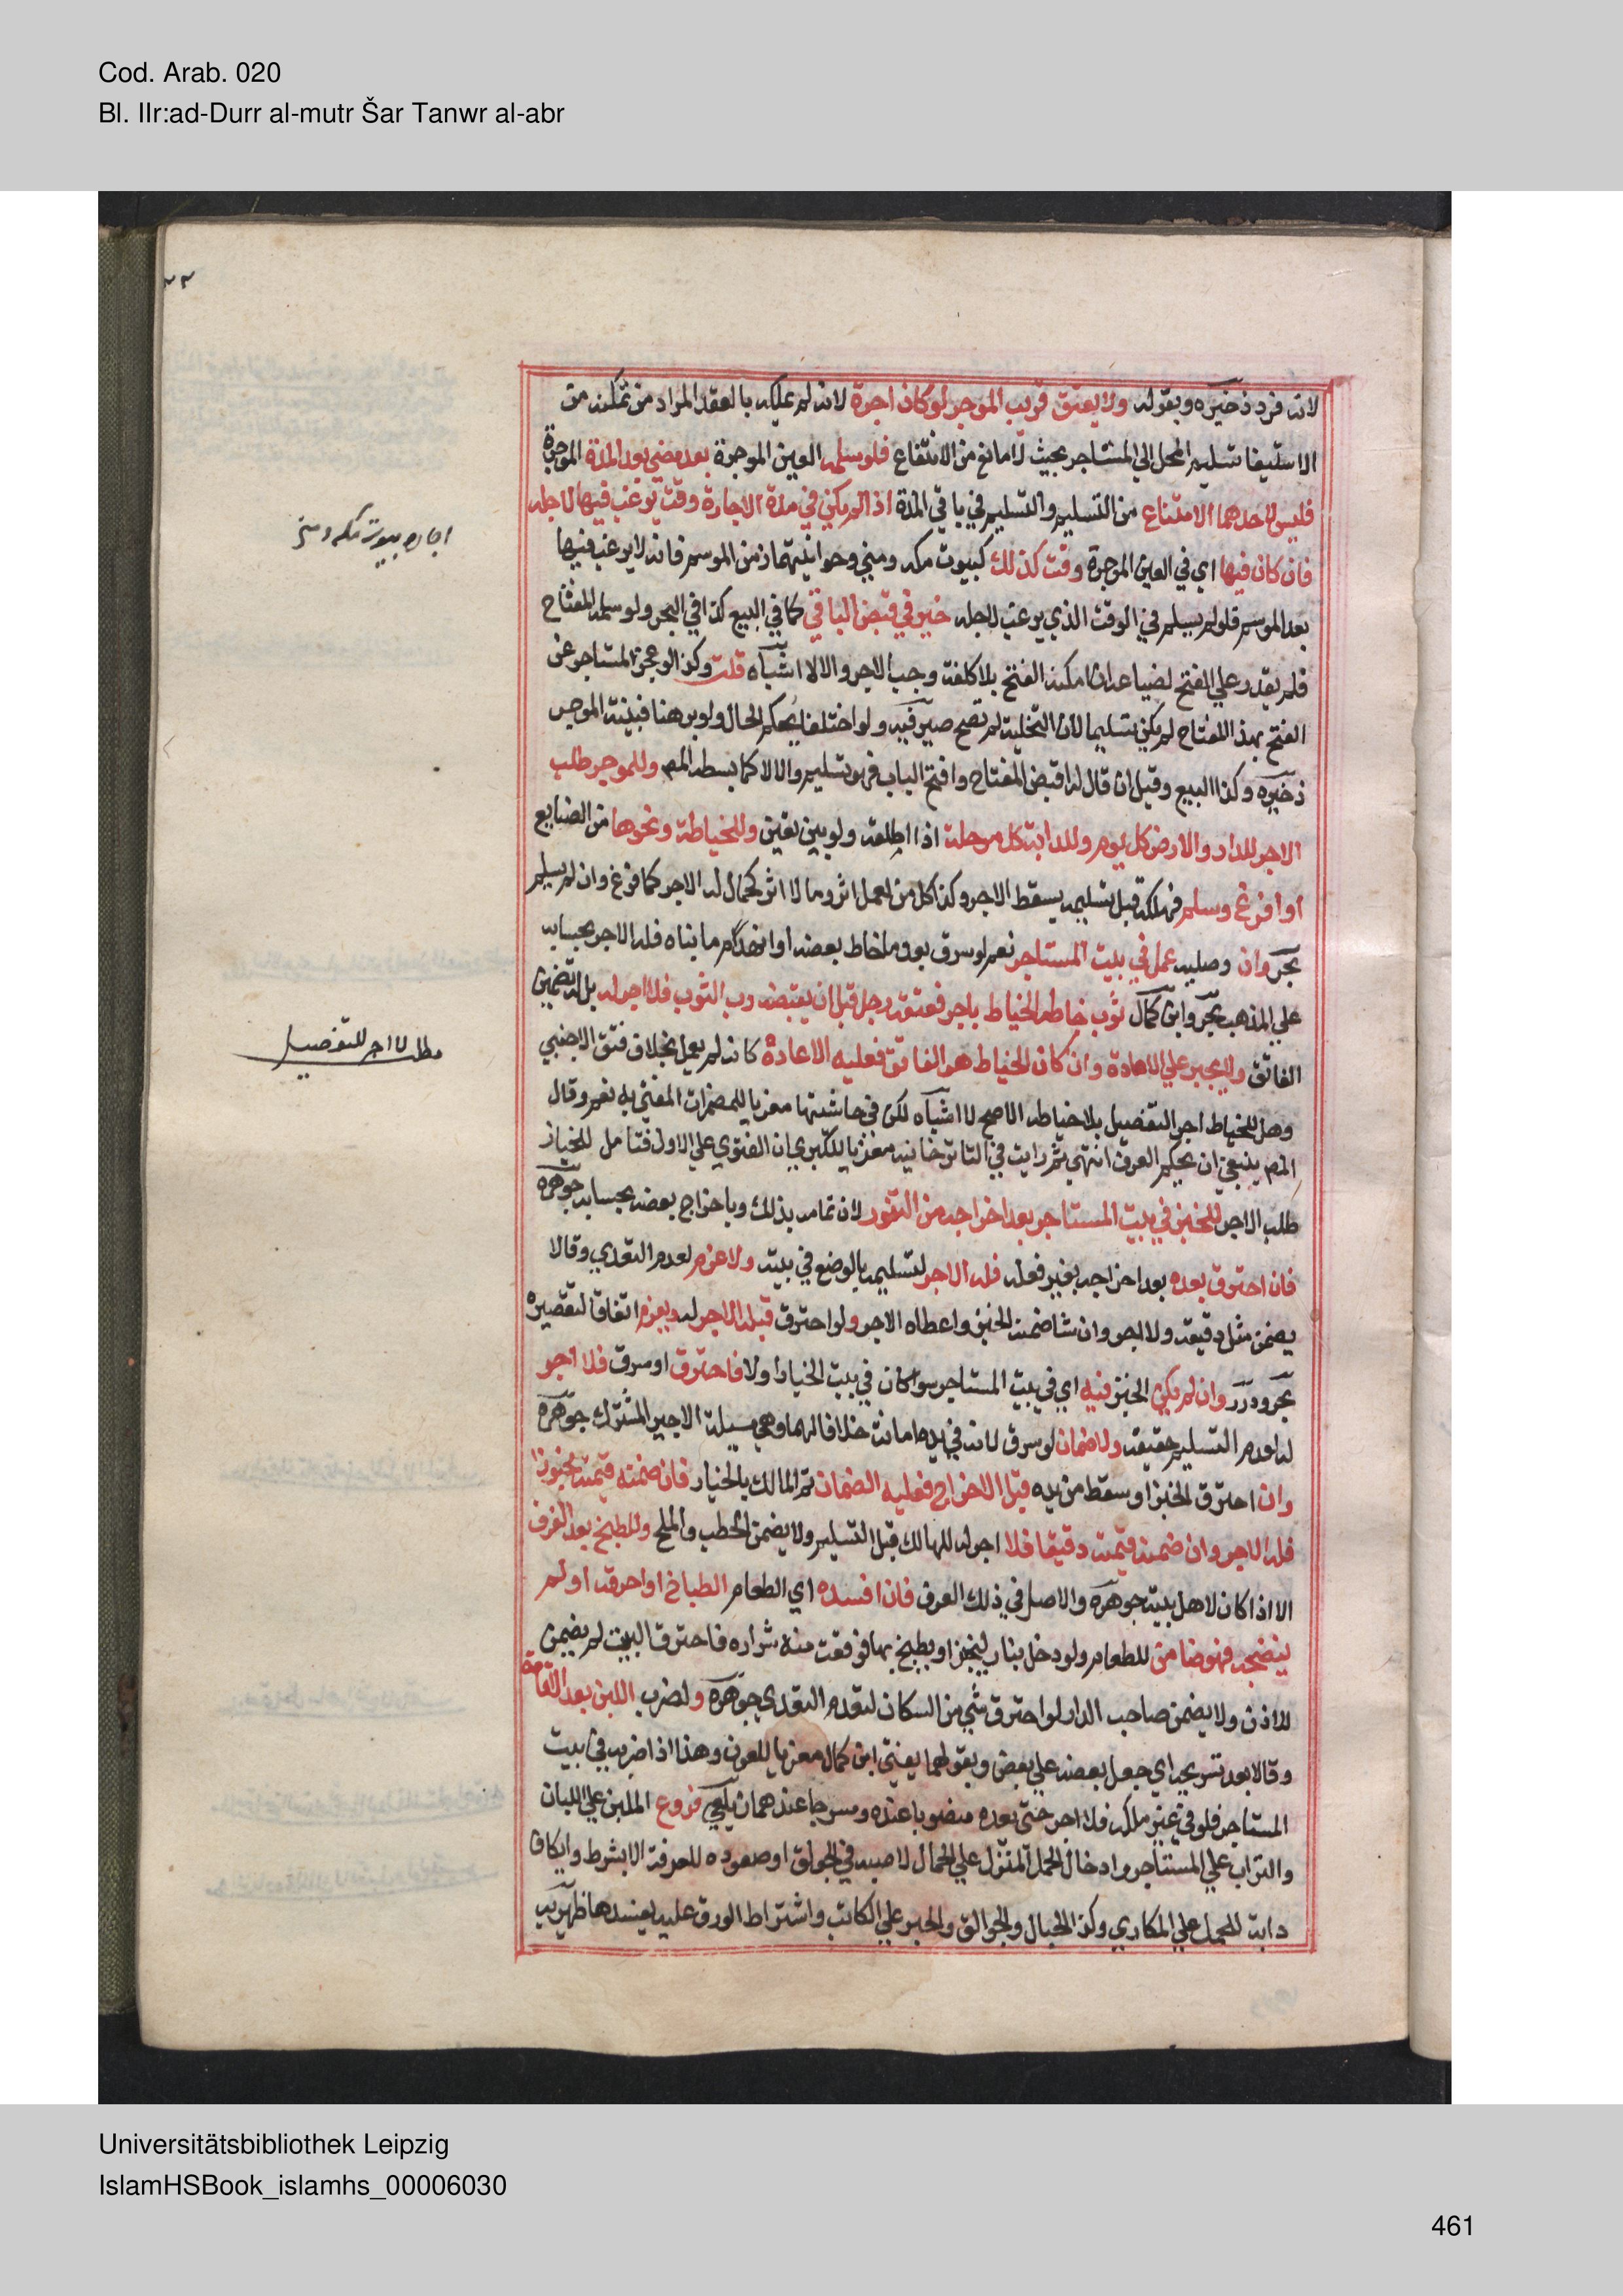 Cod. Arab. 020
Bl. IIr:ad-Durr al-mutr Šar Tanwr al-abr
لانه فرد ذخيره وبقوله ولا يعتق قريب الموجر لو كان اجرة لانه لم يملكه بالعقد المراد من تمكنه من
الاستيفا تسليم المحل الي المستاجر بحيث لا مانع من الانتفاع فلو سلمه العين الموجرة بعد مضي بعد المدة الموجرة
فليس لاحدهما الامتناع من التسليم والتسليم في باقي المدة اذا لم يكن في مدة الاجارة وقت يوغب فيها لاجله
فان كان فيها اي في العين الموجرة وقت كذلك كبيوت مكه ومني وحوانيتهما زمن الموسم فانه لا يرغب فيها
بعد الموسم فلو لم يسلم في الوقت الذي يرغب لاجله خير في قبض الباقي كما في البيع كذا في البحر ولو سلمه المفتاح
فلم يقدر علي الفتح لضياعه ان امكنه الفتح بلا كلفة وجب الاجر والا لا اشباه قلت وكذا لو عجز المستاجر عن
الفتح بهذا المفتاح لم يكن تسليما لان التخلية لم تصح صيرفيه ولو اختلفا يحكم الحال ولو برهنا فبينة الموجر
ذخيره وكذا البيع وقيل ان قال له اقبض المفتاح وافتح الباب فهو تسليم والا لا كما بسطه المص وللموجر طلب
الاجر للدار والارض كل يوم وللدابة كل مرحلة اذا اطلقه ولو بين تعين وللخياطة ونحوها من الصنايع
او افرغ وسلم فهلكه قبل تسليمه يسقط الاجر وكذا كل من لعمله اثر وما لا اثر كحمال له الاجر كما فرغ وان لم يسلم
بحر وان وصليه عمل في بيت المستاجر نعم لو سرق بعد ما خاط بعضه او انهدم ما بناه فله الاجر بحسابه
علي المذهب بحر وابن كمال ثوب خاطه الخياط باجر ففتقه رجل قبل ان يقبضه رب الثوب فلا اجر له بل له تضمين
الفاتق ولا يجبر علي الاعادة وان كان الخياط هو الفاتق فعليه الاعادة كانه لم يعمل بخلاف فتق الاجنبي
وهل للخياط اجر التفصيل بلا خياطه الاصح لا اشباه لكن في حاشيتها معزيا للمضمرات المفتي به نعم وقال
المص ينبغي ان يحكم العرف انتهي ثم رايت في التاترخانيه معزيا للكبري ان الفتوي علي الاول فتامل للخباز
طلب الاجر للخبز في بيت المستاجر بعد اخراجه من التنور لان تمامه بذلك وباخراج بعضه بحسابه جوهره
فان احترق بعده بعد اخراجه بغير فعله فله الاجر لتسليمه بالوضع في بيته ولا غرم لعدم التعدي وقالا
يضمن مثل دقيقه ولا اجر وان شا ضمنه الخبز واعطاه الاجر ولو احترق قبله لا اجر له ويغرم اتفاقا لتقصيره
بحر ودرر وان لم يكن الخبز فيه اي في بيت المستاجر سوا كان في بيت الخباز اولا فاحترق او سرق فلا اجر
له لعدم التسليم حقيقة ولا ضمان لو سرق لانه في يده امانة خلافا لهما وهي مسيلة الاجير المشترك جوهره
وان احترق الخبز او سقط من يده قبل الاخراج فعليه الضمان ثم المالك بالخيار فان ضمنه قيمته مخبوزا
فله الاجر وان ضمنه قيمته دقيقا فلا اجر له للهالك قبل التسليم ولا يضمن الحطب والملح وللطبخ بعد الغرف
الا اذا كان لاهل بيته جوهره والاصل في ذلك العرف فان افسده اي الطعام الطباخ او احرقه او لم
ينضجه فهو ضامن للطعام ولو دخل بنار ليخبز او يطبخ بها فوقعت منه شراره فاحترق البيت لم يضمن
للاذن ولا يضمن صاحب الدار لو احترق شي من السكان لعدم التعدي جوهره ولضرب اللبن بعد الاقامة
وقالا بعد تشريجه اي جعل بعضه علي بعض وبقولهما يفتي ابن كمال معزيا للعيون وهذا اذا ضربه في بيت
المستاجر فلو في غير ملكه فلا اجر حتي بعده منصوبا عنده ومسرجا عندهما زيلعي فروع الملبن علي اللبان
والتراب علي المستاجر وادخال الحمل المنزل علي الحمال لا صبه في الجوالق او صعوده للغرفة الا بشرط وايكاف
دابة للحمل علي المكاري وكذا الحبال والجوالق والحبر علي الكاتب واشتراط الورق عليه يفسدها ظهيريه
اجاره بيوت مكه ومني
مطلب لا اجر للتفصيل
Universitätsbibliothek Leipzig
IslamHSBook_islamhs_00006030
461